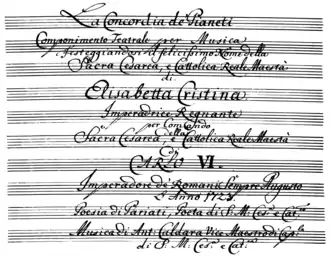 La Concordia de' Pianeti
Componimento Teatrale per Musica
festeggiandosi il felicissimo Nome della
Sacra Cesarea, e Cattolica Reale Maestà
di
Elisabetta Cristina
Imperadrice Regnante
per Comando
della
Sacra Cesarea, e Cattolica Reale Maestà
di
CARLO VI.
Imperadore de' Romani Sempre Augusto
L'Anno 1723.
Poesia di Pariati, Poeta di S. M: Ces: e Cat:
Musica di Ant: Caldara Vice Maestro di Cap:
di S. M: Ces: e Cat: